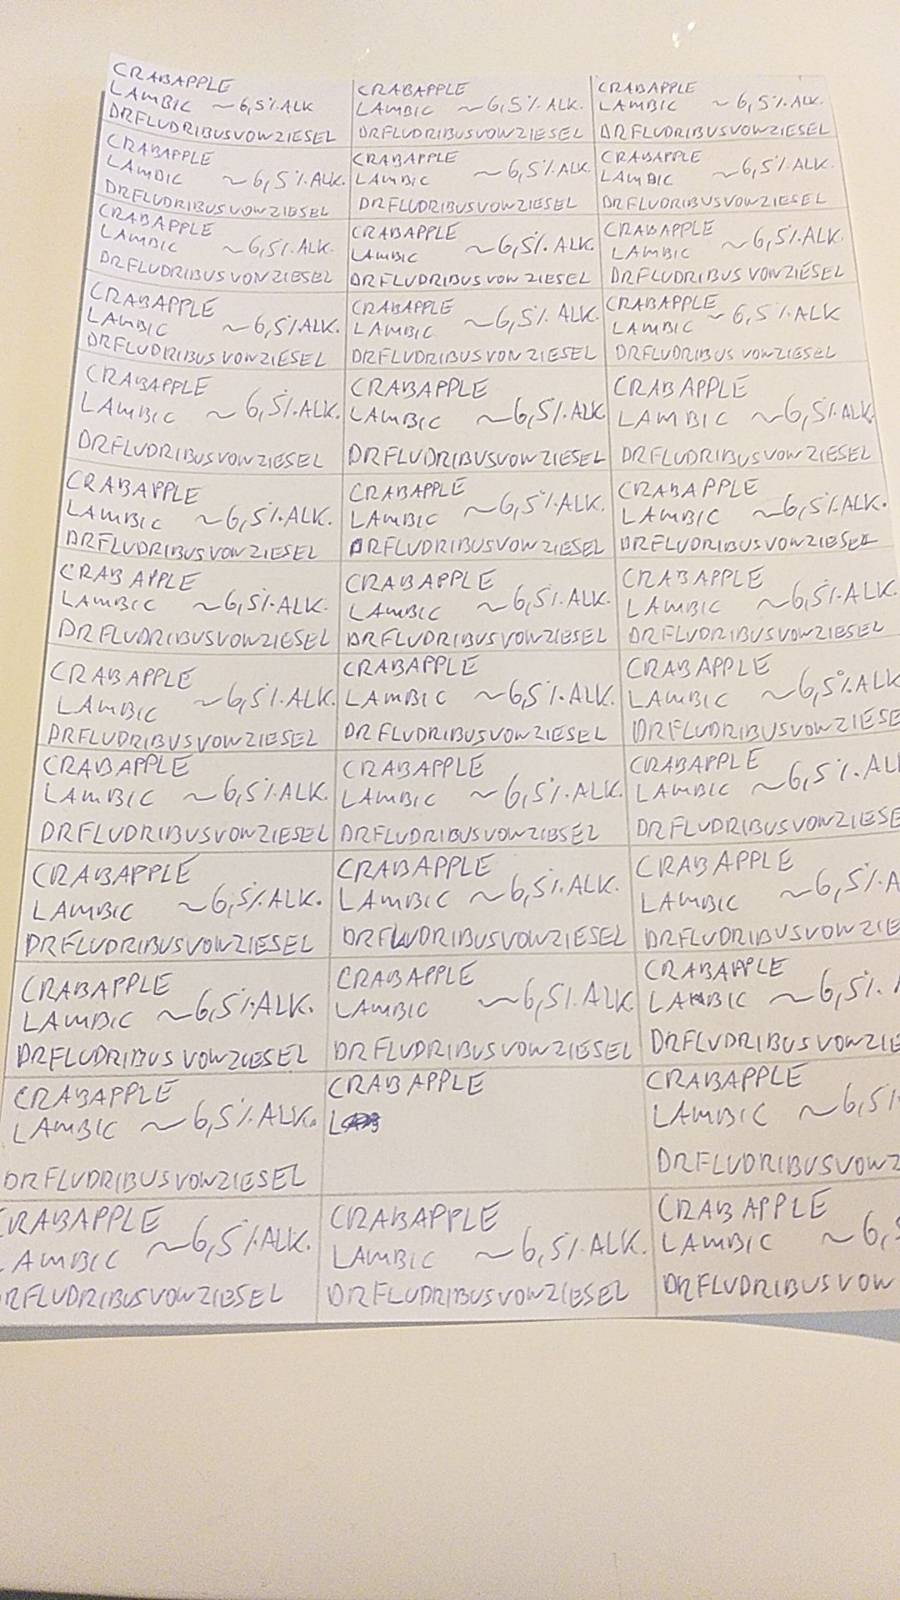 CRABAPPLE
LAMBIC ~6,5% ALK
DRFLUDRIBUSVONZIESEL
CRABAPPLE
LAMBIC ~6,5% ALK.
DRFLUDRIBUSVONZIESEL
CRABAPPLE
LAMBIC ~6,5% ALK.
DRFLUDRIBUSVONZIESEL
CRABAPPLE
LAMBIC ~6,5% ALK.
DRFLUDRIBUSVONZIESEL
CRABAPPLE
LAMBIC ~6,5% ALK.
DRFLUDRIBUSVONZIESEL
CRABAPPLE
LAMBIC ~6,5% ALK.
DRFLUDRIBUSVONZIESEL
CRABAPPLE
LAMBIC ~6,5% ALK.
DRFLUDRIBUSVONZIESEL
CRABAPPLE
LAMBIC ~6,5% ALK.
DRFLUDRIBUS VON ZIESEL
CRABAPPLE
LAMBIC ~6,5% ALK.
DRFLUDRIBUS VONZIESEL
CRABAPPLE
LAMBIC ~6,5% ALK.
DRFLUDRIBUS VONZIESEL
CRABAPPLE
LAMBIC ~6,5% ALK.
DRFLUDRIBUSVON ZIESEL
CRABAPPLE
LAMBIC ~6,5% ALK
DRFLUDRIBUS VONZIESEL
CRABAPPLE
LAMBIC ~6,5% ALK.
DRFLUDRIBUSVONZIESEL
CRABAPPLE
LAMBIC ~6,5% ALK
DRFLUDRIBUSVONZIESEL
CRABAPPLE
LAMBIC ~6,5% ALK.
DRFLUDRIBUSVONZIESEL
CRABAPPLE
LAMBIC ~6,5% ALK.
DRFLUDRIBUSVONZIESEL
CRABAPPLE
LAMBIC ~6,5% ALK.
DRFLUDRIBUSVONZIESEL
CRABAPPLE
LAMBIC ~6,5% ALK.
DRFLUDRIBUSVONZIESEL
CRABAPPLE
LAMBIC ~6,5% ALK.
DRFLUDRIBUSVONZIESEL
CRABAPPLE
LAMBIC ~6,5% ALK.
DRFLUDRIBUSVONZIESEL
CRABAPPLE
LAMBIC ~6,5% ALK.
DRFLUDRIBUSVONZIESEL
CRABAPPLE
LAMBIC ~6,5% ALK.
DRFLUDRIBUSVONZIESEL
CRABAPPLE
LAMBIC ~6,5% ALK.
DRFLUDRIBUSVONZIESEL
CRABAPPLE
LAMBIC ~6,5% ALK
DRFLUDRIBUSVONZIESE
CRABAPPLE
LAMBIC ~6,5% ALK.
DRFLUDRIBUSVONZIESEL
CRABAPPLE
LAMBIC ~6,5% ALK.
DRFLUDRIBUSVONZIESEL
CRABAPPLE
LAMBIC ~6,5% AL
DRFLUDRIBUSVONZIESE
CRABAPPLE
LAMBIC ~6,5% ALK.
DRFLUDRIBUSVONZIESEL
CRABAPPLE
LAMBIC ~6,5% ALK.
DRFLUDRIBUSVONZIESEL
CRABAPPLE
LAMBIC ~6,5% A
DRFLUDRIBUSVONZIE
CRABAPPLE
LAMBIC ~6,5% ALK.
DRFLUDRIBUS VONZIESEL
CRABAPPLE
LAMBIC ~6,5% ALK
DRFLUDRIBUSVONZIESEL
CRABAPPLE
LAMBIC ~6,5%
DRFLUDRIBUSVONZIE
CRABAPPLE
LAMBIC ~6,5% ALK.
DRFLUDRIBUSVONZIESEL
CRABAPPLE
L
CRABAPPLE
LAMBIC ~6,5%
DRFLUDRIBUSVONZ
CRABAPPLE
LAMBIC ~6,5% ALK.
DRFLUDRIBUSVONZIESEL
CRABAPPLE
LAMBIC ~6,5% ALK.
DRFLUDRIBUSVONZIESEL
CRABAPPLE
LAMBIC ~6,5
DRFLUDRIBUSVON